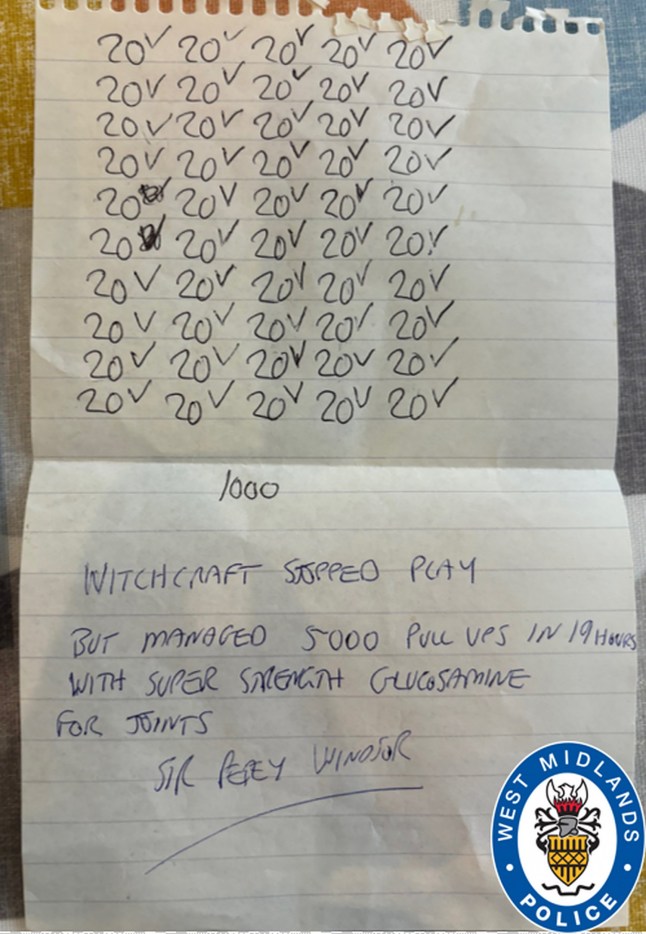 20✓ 20✓ 20✓ 20✓ 20✓
20✓ 20✓ 20✓ 20✓ 20✓
20✓ 20✓ 20✓ 20✓ 20✓
20✓ 20✓ 20✓ 20✓ 20✓
20✓ 20✓ 20✓ 20✓ 20✓
20✓ 20✓ 20✓ 20✓ 20✓
20✓ 20✓ 20✓ 20✓ 20✓
20✓ 20✓ 20✓ 20✓ 20✓
20✓ 20✓ 20✓ 20✓ 20✓
20✓ 20✓ 20✓ 20✓ 20✓
1000
WITCHCRAFT STOPPED PLAY
BUT MANAGED 5000 PULL UPS IN 19 HOURS
WITH SUPER STRENGTH GLUCOSAMINE
FOR JOINTS
SIR WINDSOR
WEST MIDLANDS
POLICE